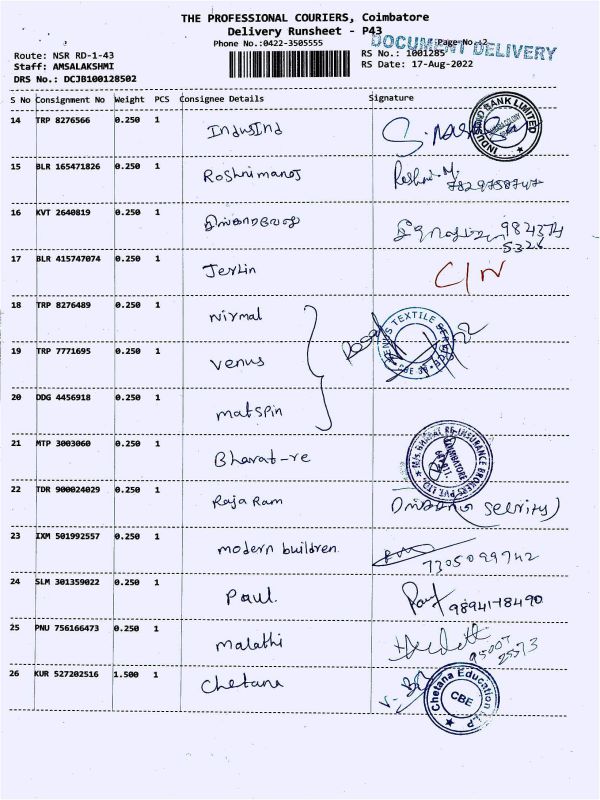 THE PROFESSIONAL COURIERS, Coimbatore
Delivery Runsheet - P43
Phone No.:0422-3505555
Page No.:2
DOCUMENT DELIVERY
Route: NSR RD-1-43
RS No.: 1001285
Staff: AMSALAKSHMI
RS Date: 17-Aug-2022
DRS No.: DCJB100128502
S No Consignment No Weight PCS Consignee Details Signature
14 TRP 8276566 0.250 1 IndusInd
INDUSIND BANK LIMITED
15 BLR 165471826 0.250 1 Roshnimanoj Roshni.M.
7829758747
16 KVT 2640819 0.250 1 984374
5326
17 BLR 415747074 0.250 1 Jerlin C/N
18 TRP 8276489 0.250 1 Nirmal
VENUS TEXTILE
19 TRP 7771695 0.250 1 Venus
20 DDG 4456918 0.250 1 matspin
21 MTP 3003060 0.250 1 Bharat-re
RE-INSURANCE BROKERS PVT. LTD. COIMBATORE
22 TDR 900024029 0.250 1 Raja Ram (Secrity)
23 IXM 501992557 0.250 1 modern buildren
7305099742
24 SLM 301359022 0.250 1 Paul. Paul 9894178490
25 PNU 756166473 0.250 1 malathi
95007
25573
26 KUR 527202516 1.500 1 Chetana
Chetana Education LLP
CBE